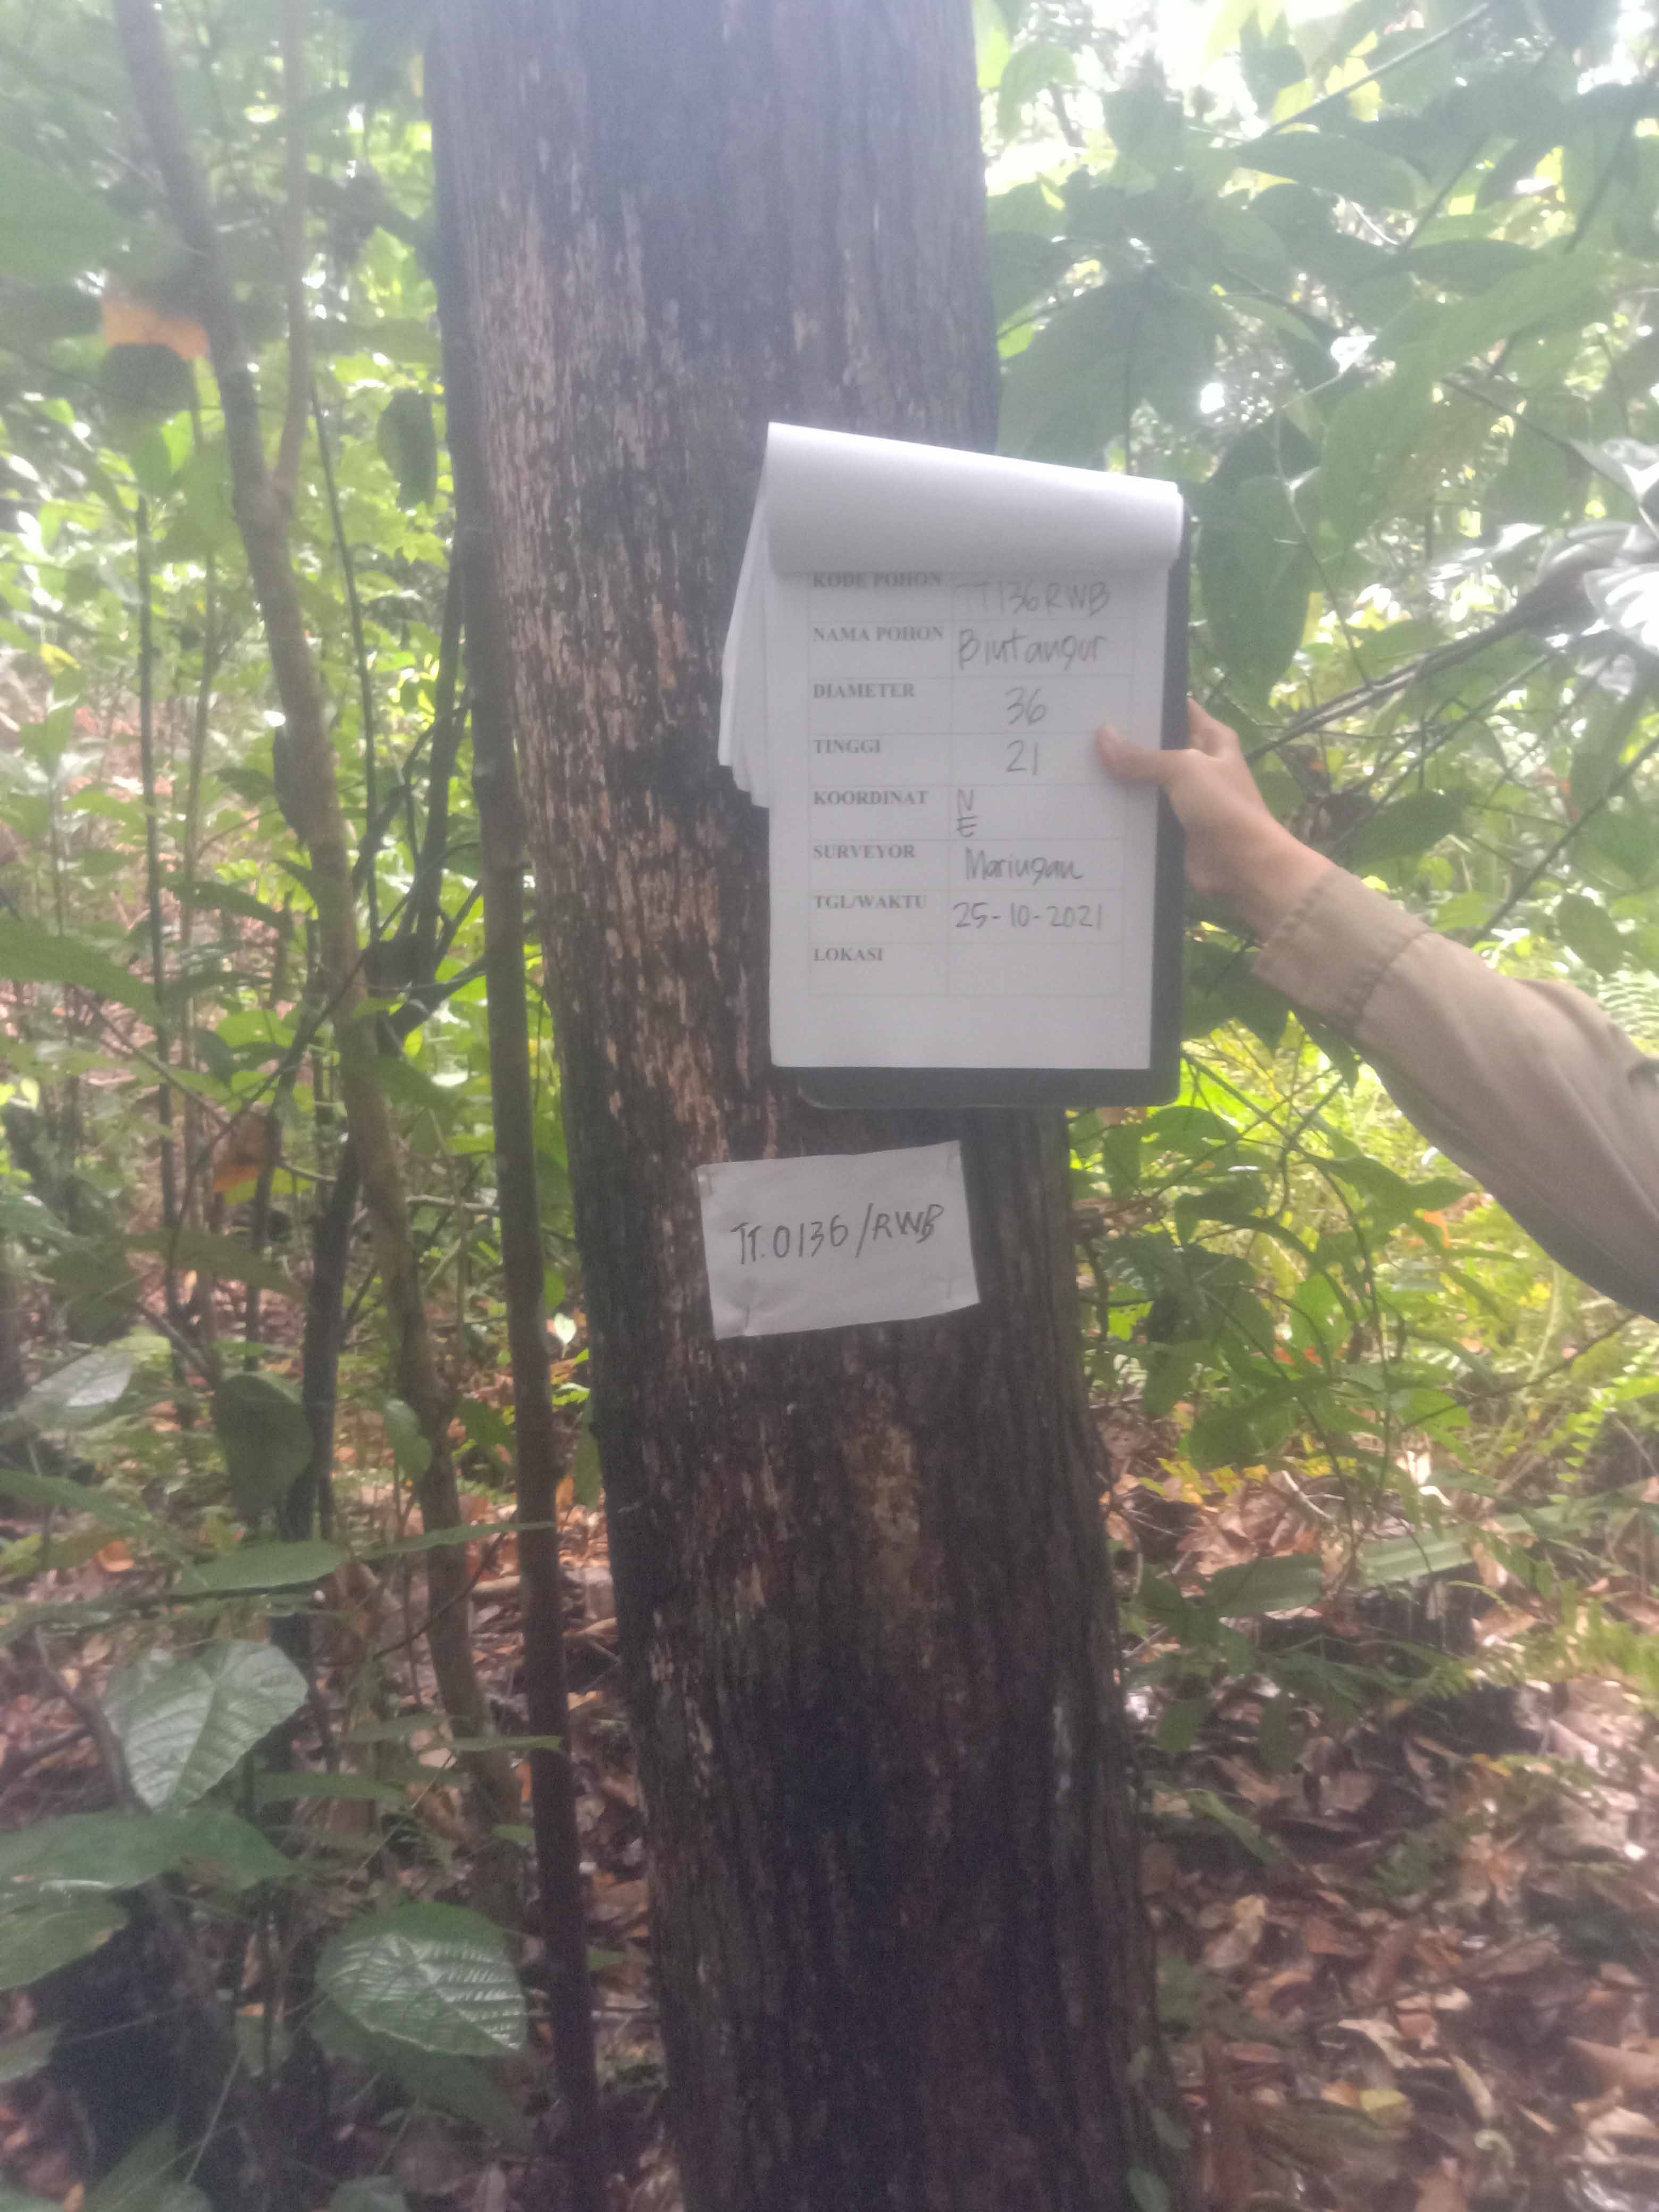 KODE POHON TT136RWB
NAMA POHON Bintangur
DIAMETER 36
TINGGI 21
KOORDINAT N
E
SURVEYOR Maringan
TGL/WAKTU 25-10-2021
LOKASI
TT.0136/RWB